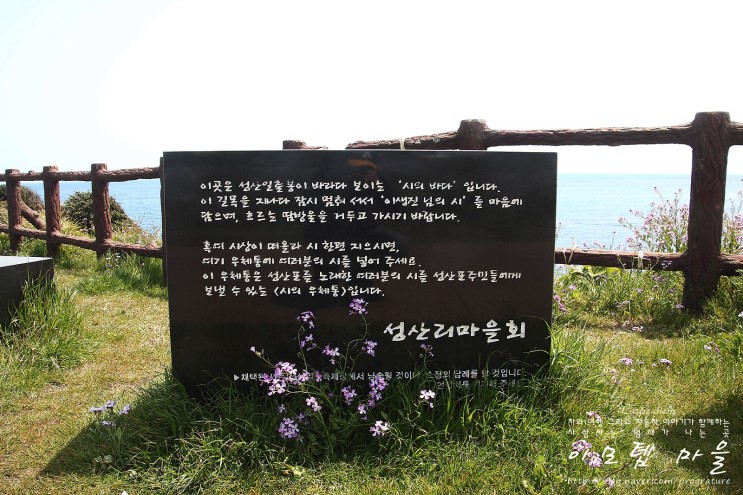 이곳은 성산일출봉이 바라다 보이는 ‘시의 바다’ 입니다.
이 길목을 지나다 잠시 멈춰 서서 ‘이생진 님의 시’를 마음에
담으며, 흐르는 땀방울을 거두고 가시기 바랍니다.
혹여 시상이 떠올라 시 한편 지으시면,
여기 우체통에 여러분의 시를 넣어 주세요.
이 우체통은 성산포를 노래한 여러분의 시를 성산포주민들에게
보낼 수 있는 <시의 우체통>입니다.
성산리마을회
▶채택된
에서 낭송될 것이
소정의 답례를 할 것입니다
Carpe diem
이모텝 마을